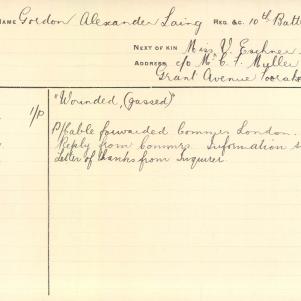 NAME Gordon Alexander Laing REG &C. 10th Batt
NEXT OF KIN Miss V. Eschner
ADDRESS c/o Mr C. F. Muller
Grant Avenue Toorak
"Wounded, (gassed)"
1/P
P/Cable forwarded Commrs London.
Reply from Commrs. Information s
Letter of thanks from Inquirer.